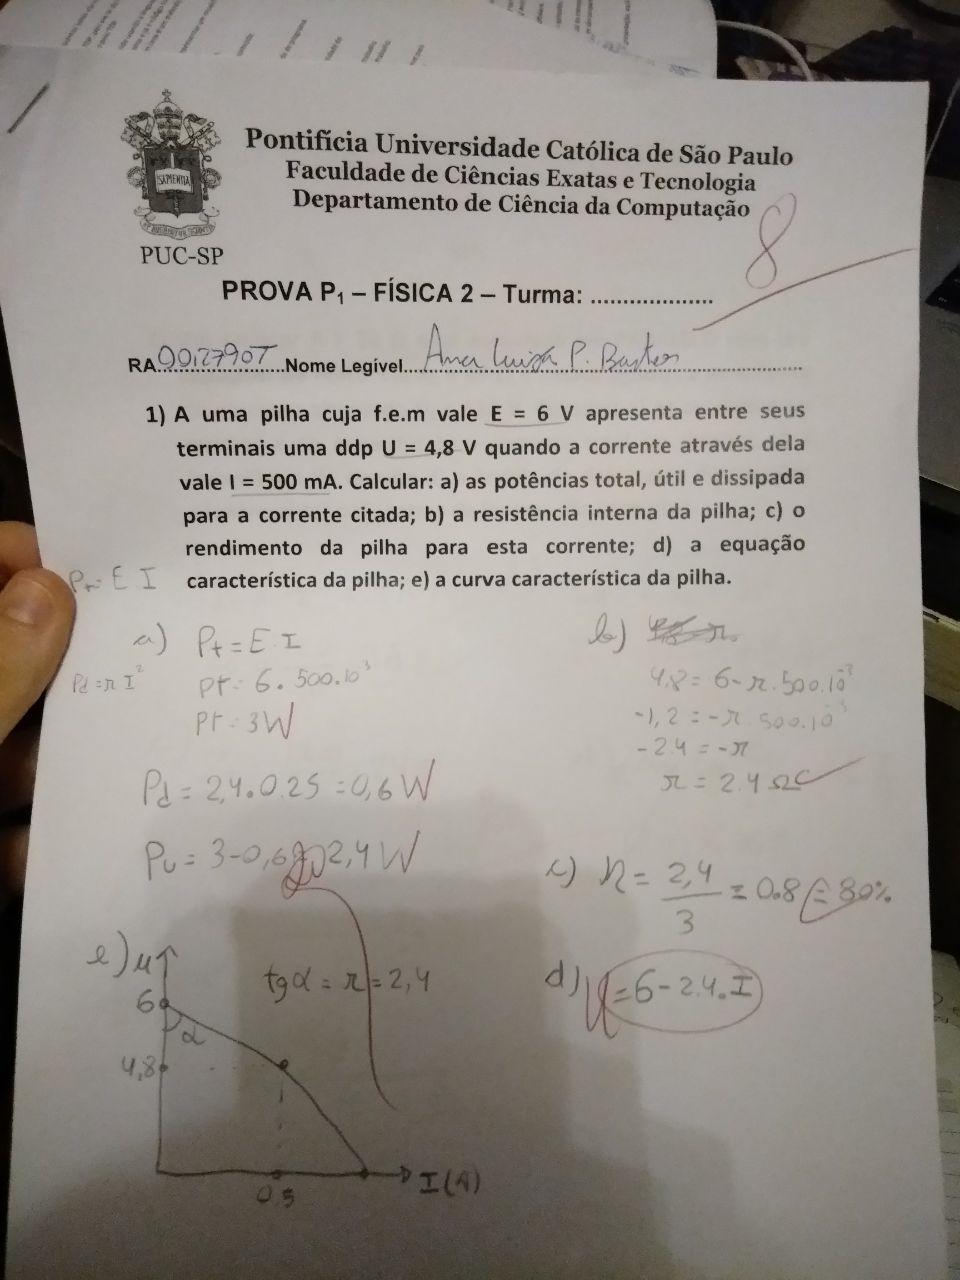 SAPIENTIA
PUC-SP
Pontifícia Universidade Católica de São Paulo
Faculdade de Ciências Exatas e Tecnologia
Departamento de Ciência da Computação
8
PROVA P1 – FÍSICA 2 – Turma: ...................
RA 00127907 Nome Legível Ana Luiza P. Bastos
1) A uma pilha cuja f.e.m vale E = 6 V apresenta entre seus
terminais uma ddp U = 4,8 V quando a corrente através dela
vale I = 500 mA. Calcular: a) as potências total, útil e dissipada
para a corrente citada; b) a resistência interna da pilha; c) o
rendimento da pilha para esta corrente; d) a equação
característica da pilha; e) a curva característica da pilha.
Pt= E I
a) Pt = E.I
Pd = r I²
Pt = 6 . 500.10⁻³
Pt = 3W
Pd = 2,4.0.25 = 0,6 W
Pu = 3-0,6 = 2,4 W
b)
4,8 = 6 - r.500.10⁻³
-1,2 = -r.500.10⁻³
-2.4 = -r
r = 2.4 Ω
c) η = 2,4/3 = 0.8 = 80%
d) U = 6 - 2.4.I
e) u
tgα = r = 2,4
6
α
4,8
0.5
I(A)